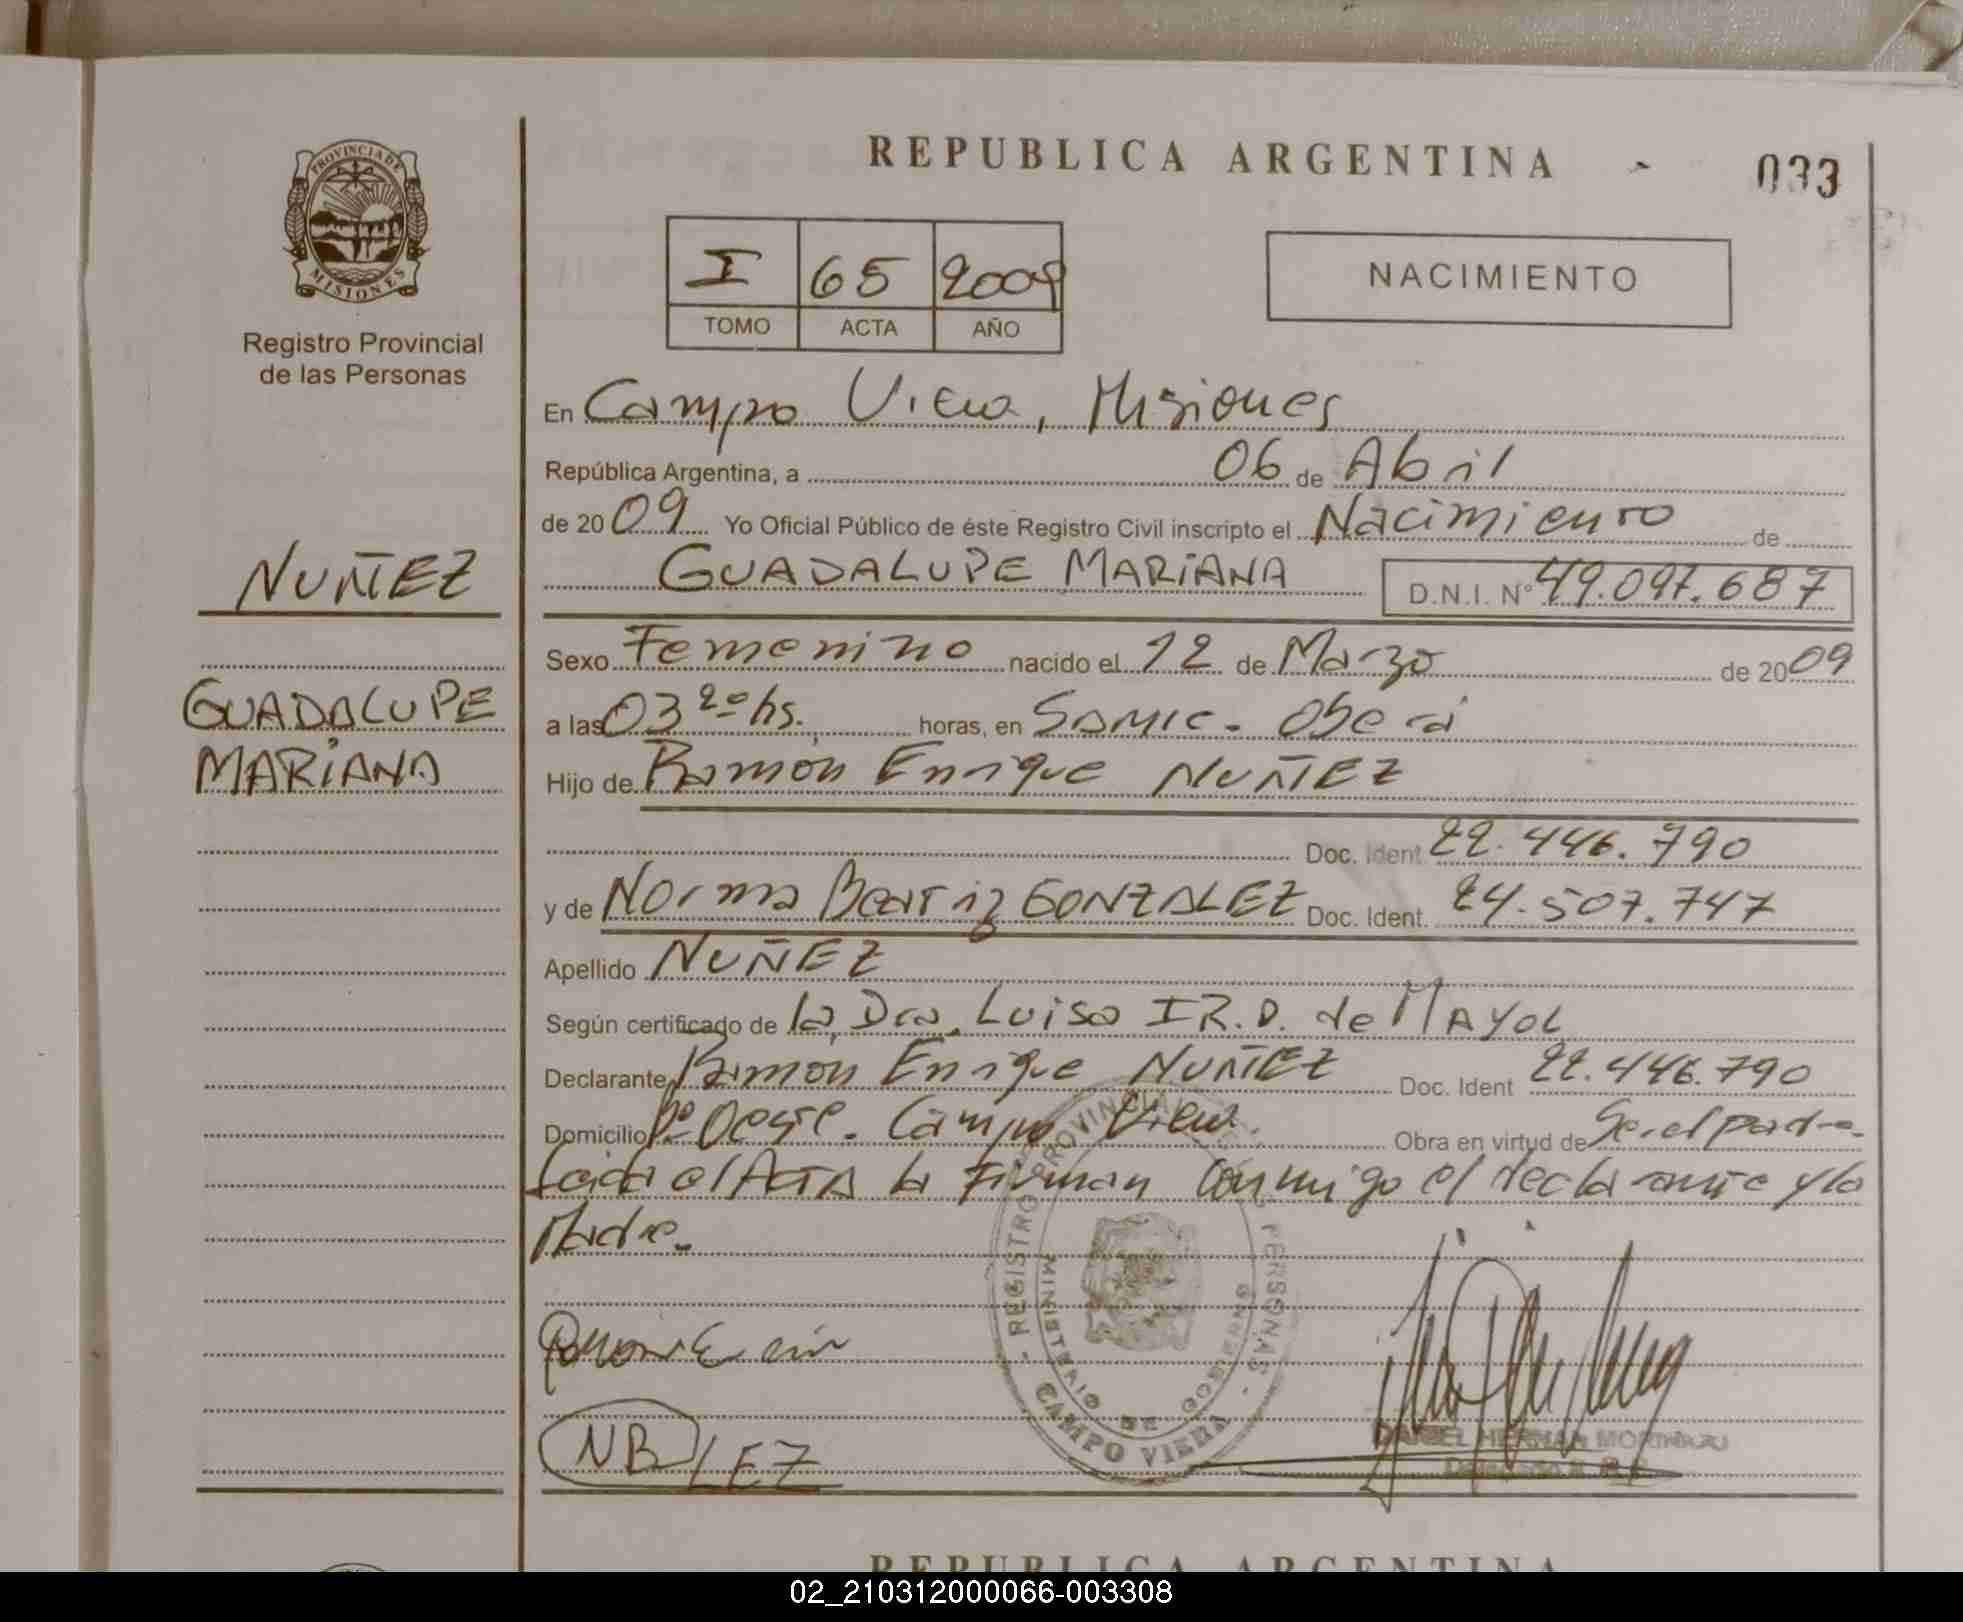 REPUBLICA ARGENTINA
033
PROVINCIA DE
MISIONES
Registro Provincial
de las Personas
I 65 2009
TOMO ACTA AÑO
NACIMIENTO
En Campo Viera, Misiones
República Argentina, a 06 de Abril
de 2009 Yo Oficial Público de éste Registro Civil inscripto el Nacimiento de
GUADALUPE MARIANA D.N.I. Nº 49.097.687
NUÑEZ
GUADALUPE
MARIANA
Sexo Femenino nacido el 12 de Marzo de 2009
a las 03 20 hs. horas, en SAMIC - Oberá
Hijo de Ramón Enrique NUÑEZ
Doc. Ident 22.446.790
y de Norma Beatriz GONZALEZ Doc. Ident. 24.507.747
Apellido NUÑEZ
Según certificado de la Dra. Luisa I R. D. de MAYOL
Declarante Ramón Enrique NUÑEZ Doc. Ident 22.446.790
Domicilio Oeste. Campo Viera. Obra en virtud de Ser el padre
Leida el ACTA la Firman Conmigo el declarante y la
Madre.
REGISTRO PROVINCIAL DE PERSONAS
MINISTERIO DE GOBIERNO
CAMPO VIERA
NB LEZ
DANIEL HERNAN
REPUBLICA ARGENTINA
02_210312000066-003308